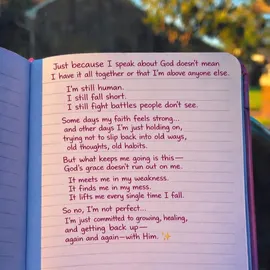 Just because I speak about God doesn't mean
I have it all together or that I'm above anyone else.
I'm still human.
I still fall short.
I still fight battles people don't see.
Some days my faith feels strong...
and other days I'm just holding on,
trying not to slip back into old ways,
old thoughts, old habits.
But what keeps me going is this—
God's grace doesn't run out on me.
It meets me in my weakness.
It finds me in my mess.
It lifts me every single time I fall.
So no, I'm not perfect...
I'm just committed to growing, healing,
and getting back up—
again and again—with Him. ✨